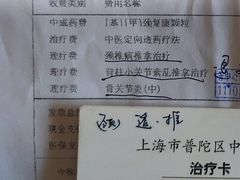 收费类别 费用名称
中成药费 [基][甲]颈复康颗粒
治疗费 中医定向透药疗法
理疗费 颈椎病推拿治疗
理疗费 脊柱小关节紊乱推拿治疗
理疗费 骨关节炎(中)
发票总
现金支
医保支
今年
上海市普陀区中
治疗卡